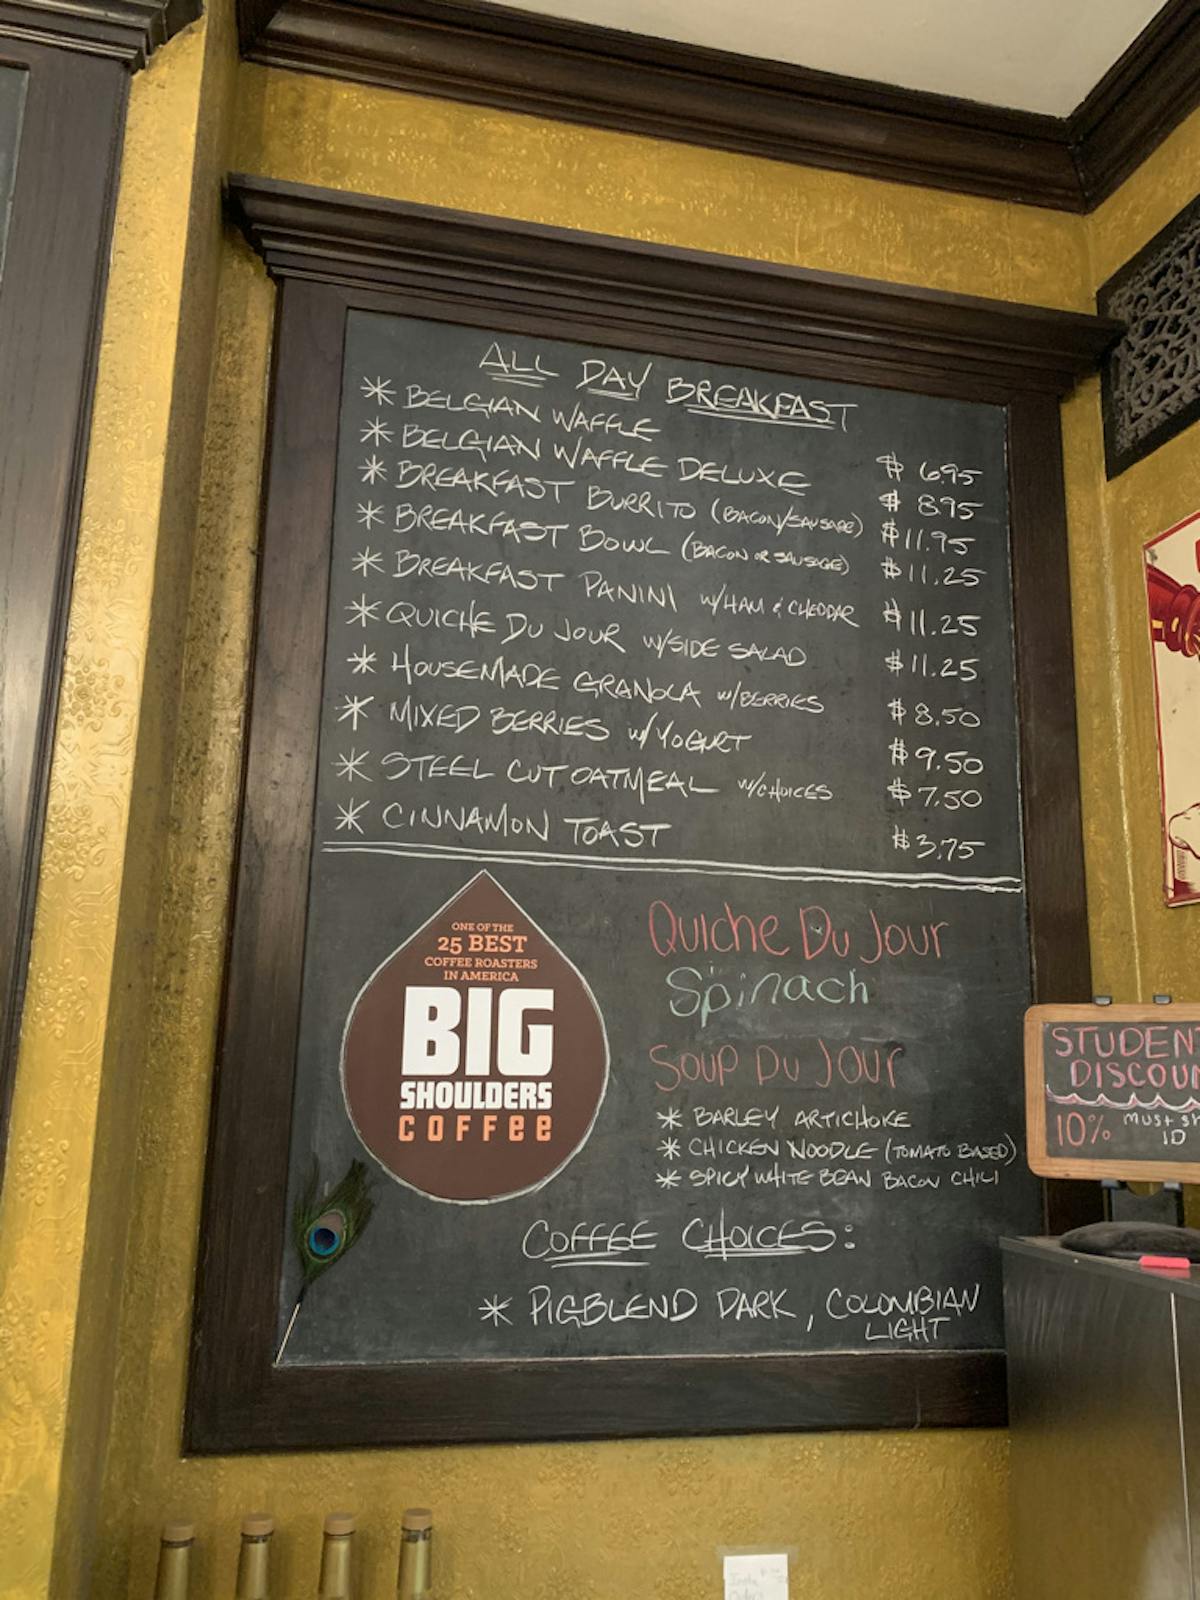 ALL DAY BREAKFAST
* BELGIAN WAFFLE $ 6.95
* BELGIAN WAFFLE DELUXE $ 8.95
* BREAKFAST BURRITO (BACON/SAUSAGE) $11.95
* BREAKFAST BOWL (BACON OR SAUSAGE) $11.25
* BREAKFAST PANINI W/HAM & CHEDDAR $11.25
* QUICHE DU JOUR W/SIDE SALAD $11.25
* HOUSEMADE GRANOLA W/BERRIES $8.50
* MIXED BERRIES W/YOGURT $9.50
* STEEL CUT OATMEAL W/CHOICES $7.50
* CINNAMON TOAST $3.75
ONE OF THE
25 BEST
COFFEE ROASTERS
IN AMERICA
BIG
SHOULDERS
COFFEE
Quiche Du Jour
Spinach
Soup Du Jour
* BARLEY ARTICHOKE
* CHICKEN NOODLE (TOMATO BASED)
* SPICY WHITE BEAN BACON CHILI
COFFEE CHOICES:
* PIGBLEND DARK, COLOMBIAN
LIGHT
STUDEN
DISCOUN
10% MUST SH
ID